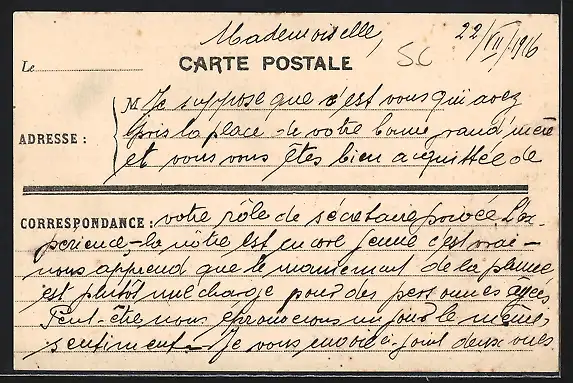 Mademoiselle,
22/VII/1916
S.C
CARTE POSTALE
Le
M Je suppose que c'est vous qui avez
ADRESSE :
pris la place de votre bonne grand'mère
et vous vous êtes bien acquittée de
CORRESPONDANCE : votre rôle de sécretaire privée. L'ex-
périence - la nôtre est encore jeune c'est vrai -
nous apprend que le maniement de la plume
est plutôt une charge pour des personnes âgées
Peut-être nous éprouverons un jour le même
sentiment - Je vous envoie ci-joint deux vues